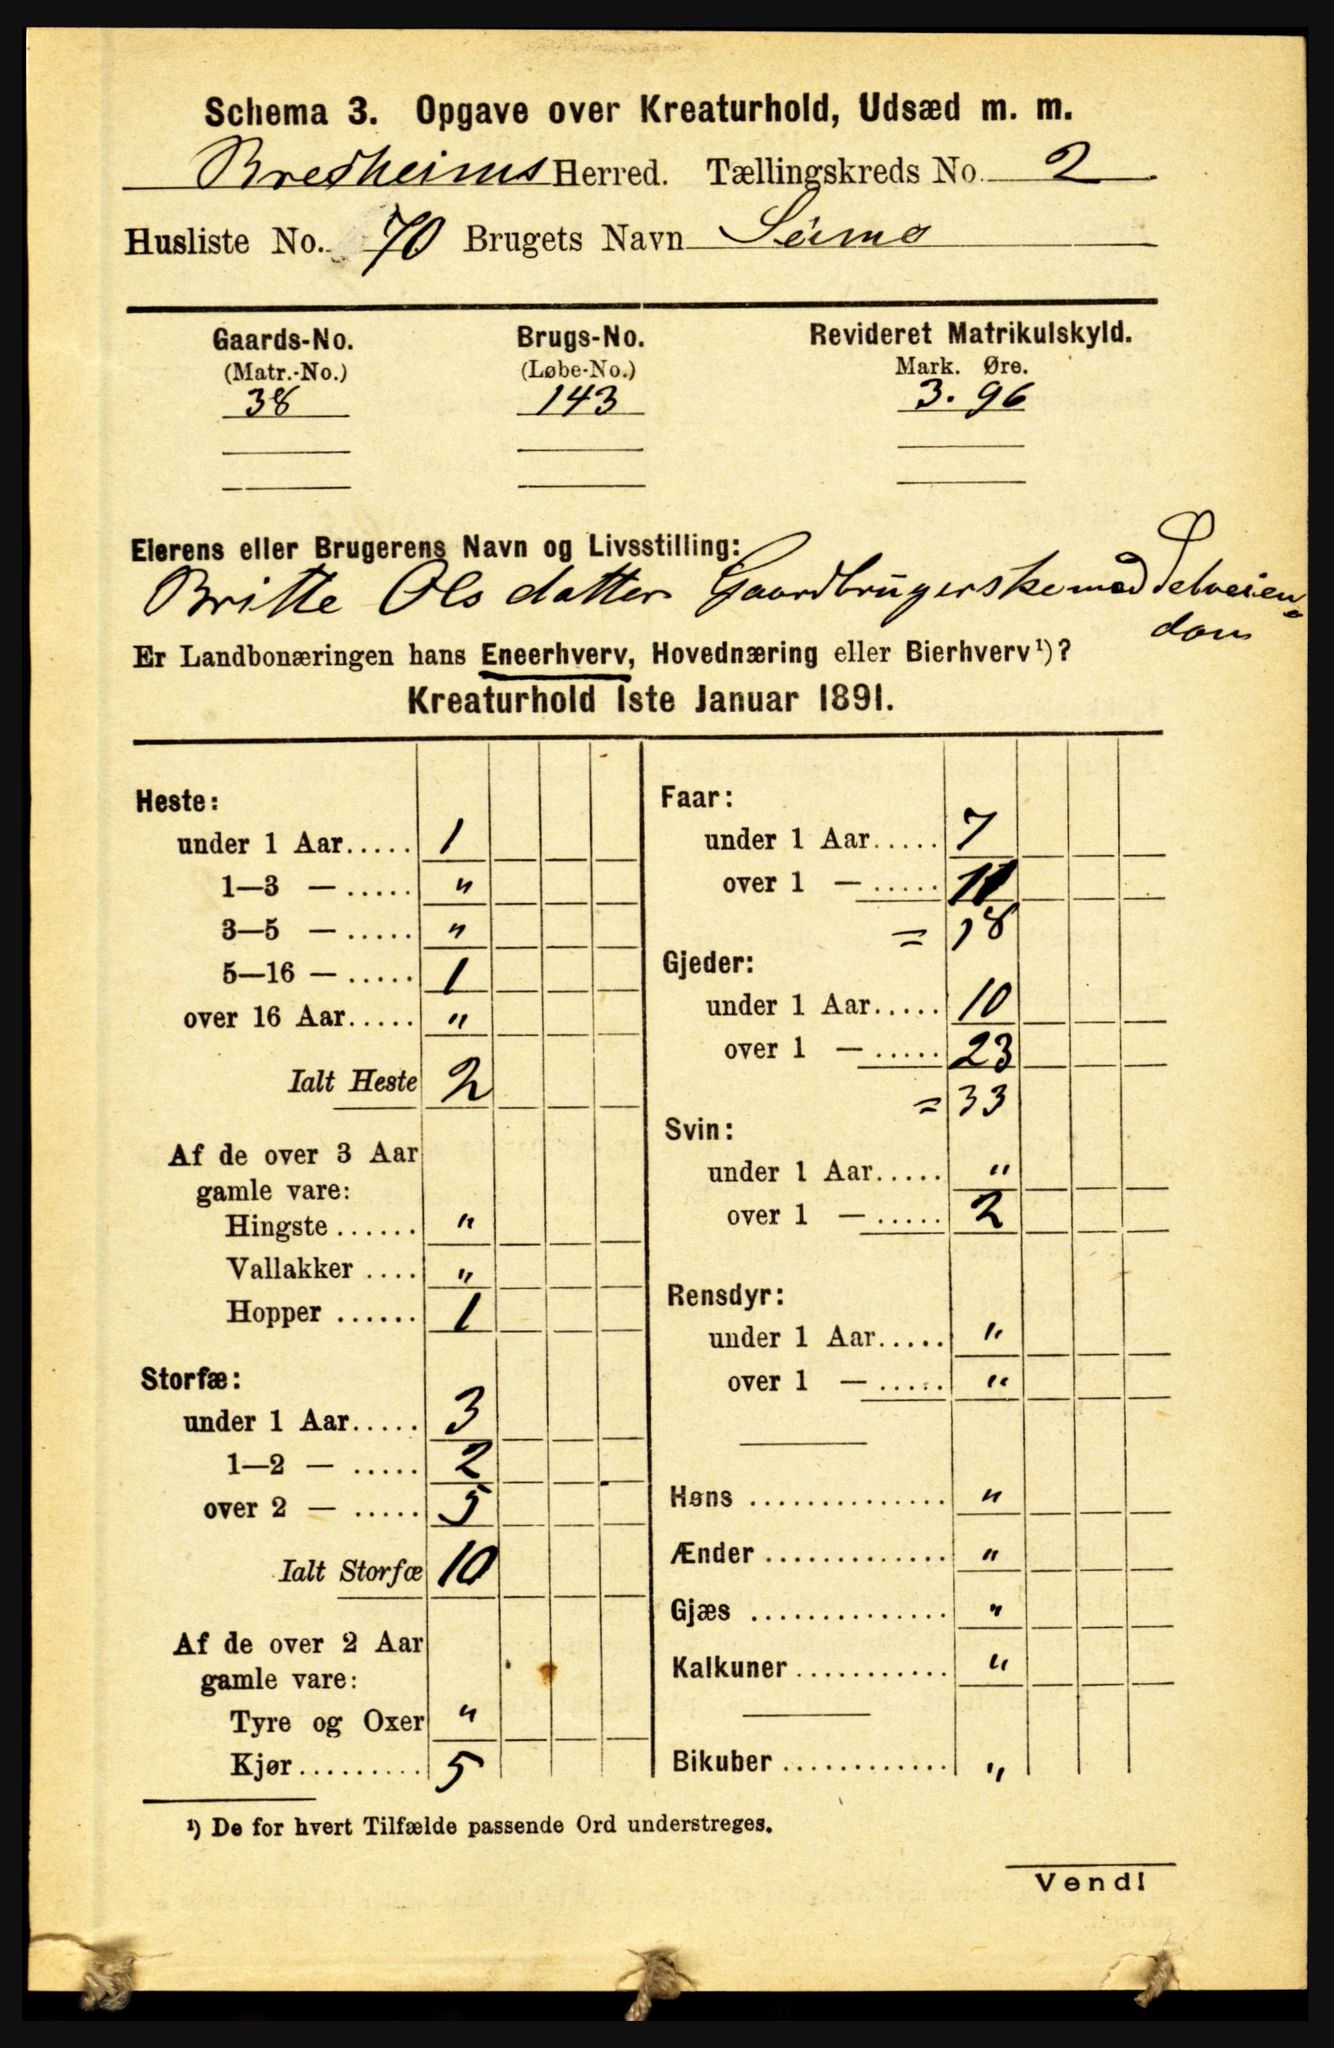 Schema 3. Opgave over Kreaturhold, Udsæd m. m.
Bredheims Herred. Tællingskreds No. 2
Husliste No. 70 Brugets Navn Seime
Gaards-No. Brugs-No. Revideret Matrikulskyld.
(Matr.-No.) (Løbe-No.) Mark. Øre.
38 143 3. 96
Eierens eller Brugerens Navn og Livsstilling:
Britte Olsdatter Gaardbrugerske med Selveien-
dom
Er Landbonæringen hans Eneerhverv, Hovednæring eller Bierhverv¹)?
Kreaturhold 1ste Januar 1891.
Heste:
under 1 Aar..... 1
1—3 — ..... "
3—5 — ..... "
5—16 — ..... 1
over 16 Aar..... "
Ialt Heste 2
Af de over 3 Aar
gamle vare:
Hingste ...... "
Vallakker .... "
Hopper ...... 1
Storfæ:
under 1 Aar..... 3
1—2 — ..... 2
over 2 — ..... 5
Ialt Storfæ 10
Af de over 2 Aar
gamle vare:
Tyre og Oxer "
Kjør......... 5
Faar:
under 1 Aar..... 7
over 1 — ..... 11
= 18
Gjeder:
under 1 Aar..... 10
over 1 — ..... 23
= 33
Svin:
under 1 Aar..... "
over 1 — ..... 2
Rensdyr:
under 1 Aar..... "
over 1 — ..... "
Høns ............... "
Ænder ............. "
Gjæs ............... "
Kalkuner........... "
Bikuber ............ "
¹) De for hvert Tilfælde passende Ord understreges.
Vend!